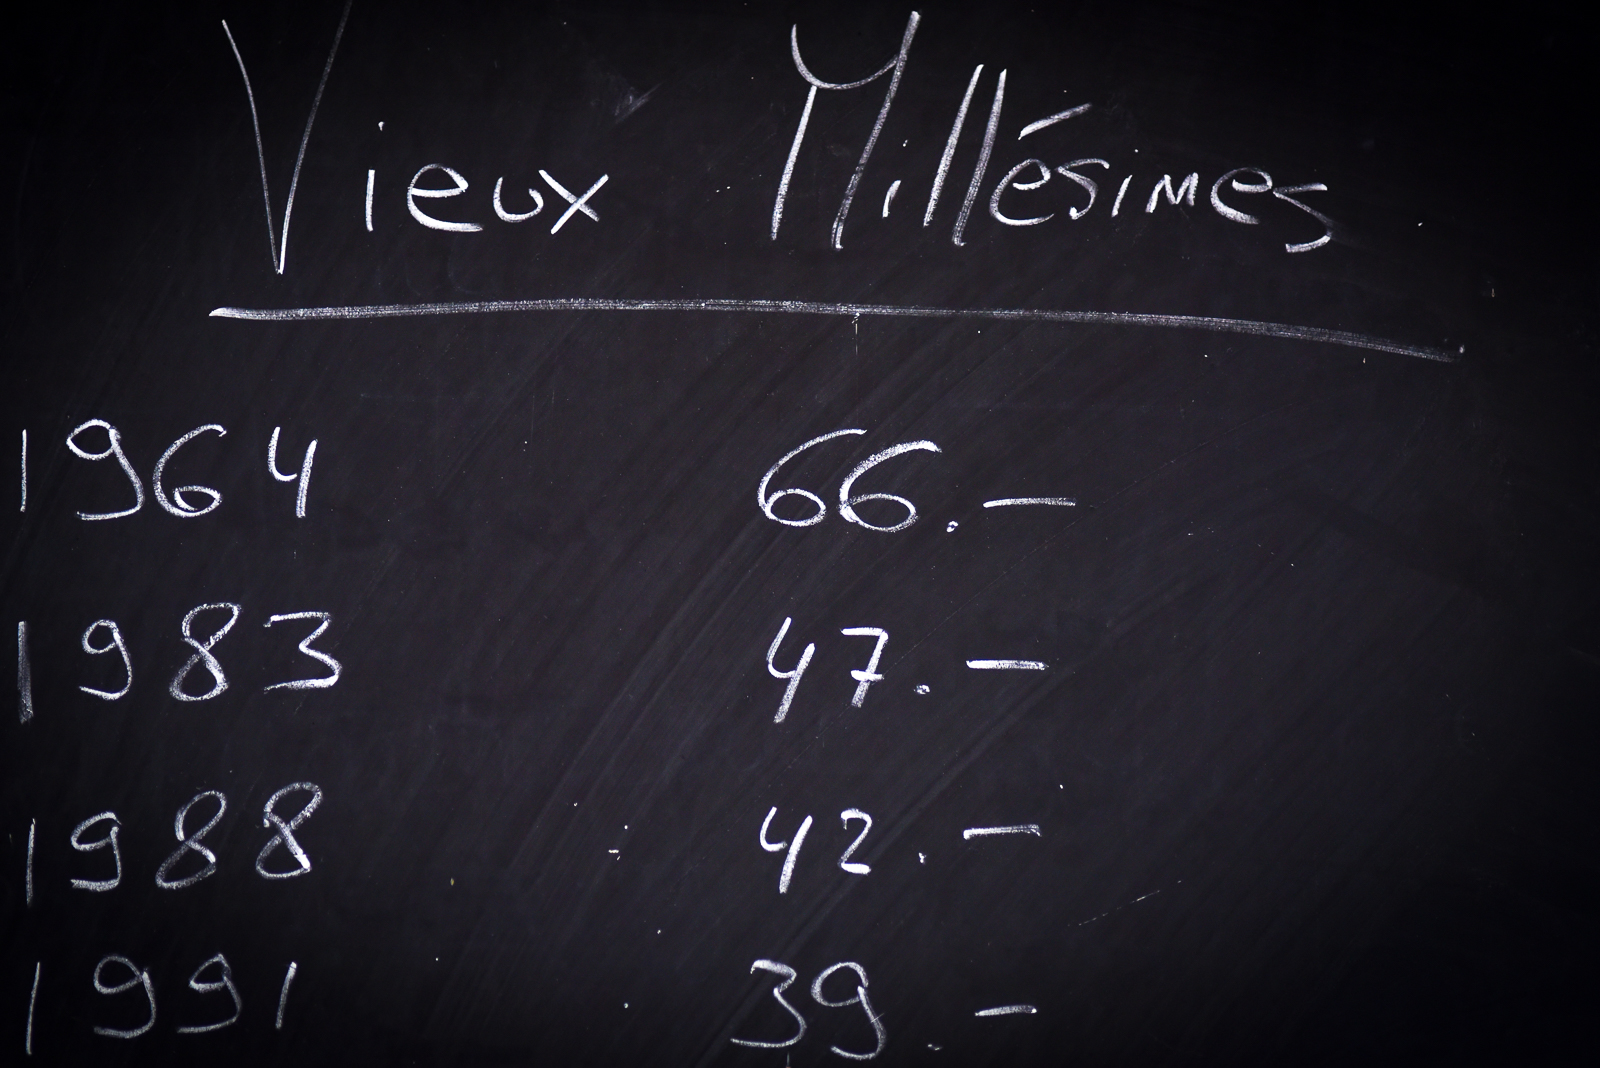 Vieux Millésimes
1964 66.—
1983 47.—
1988 42.—
1991 39.—